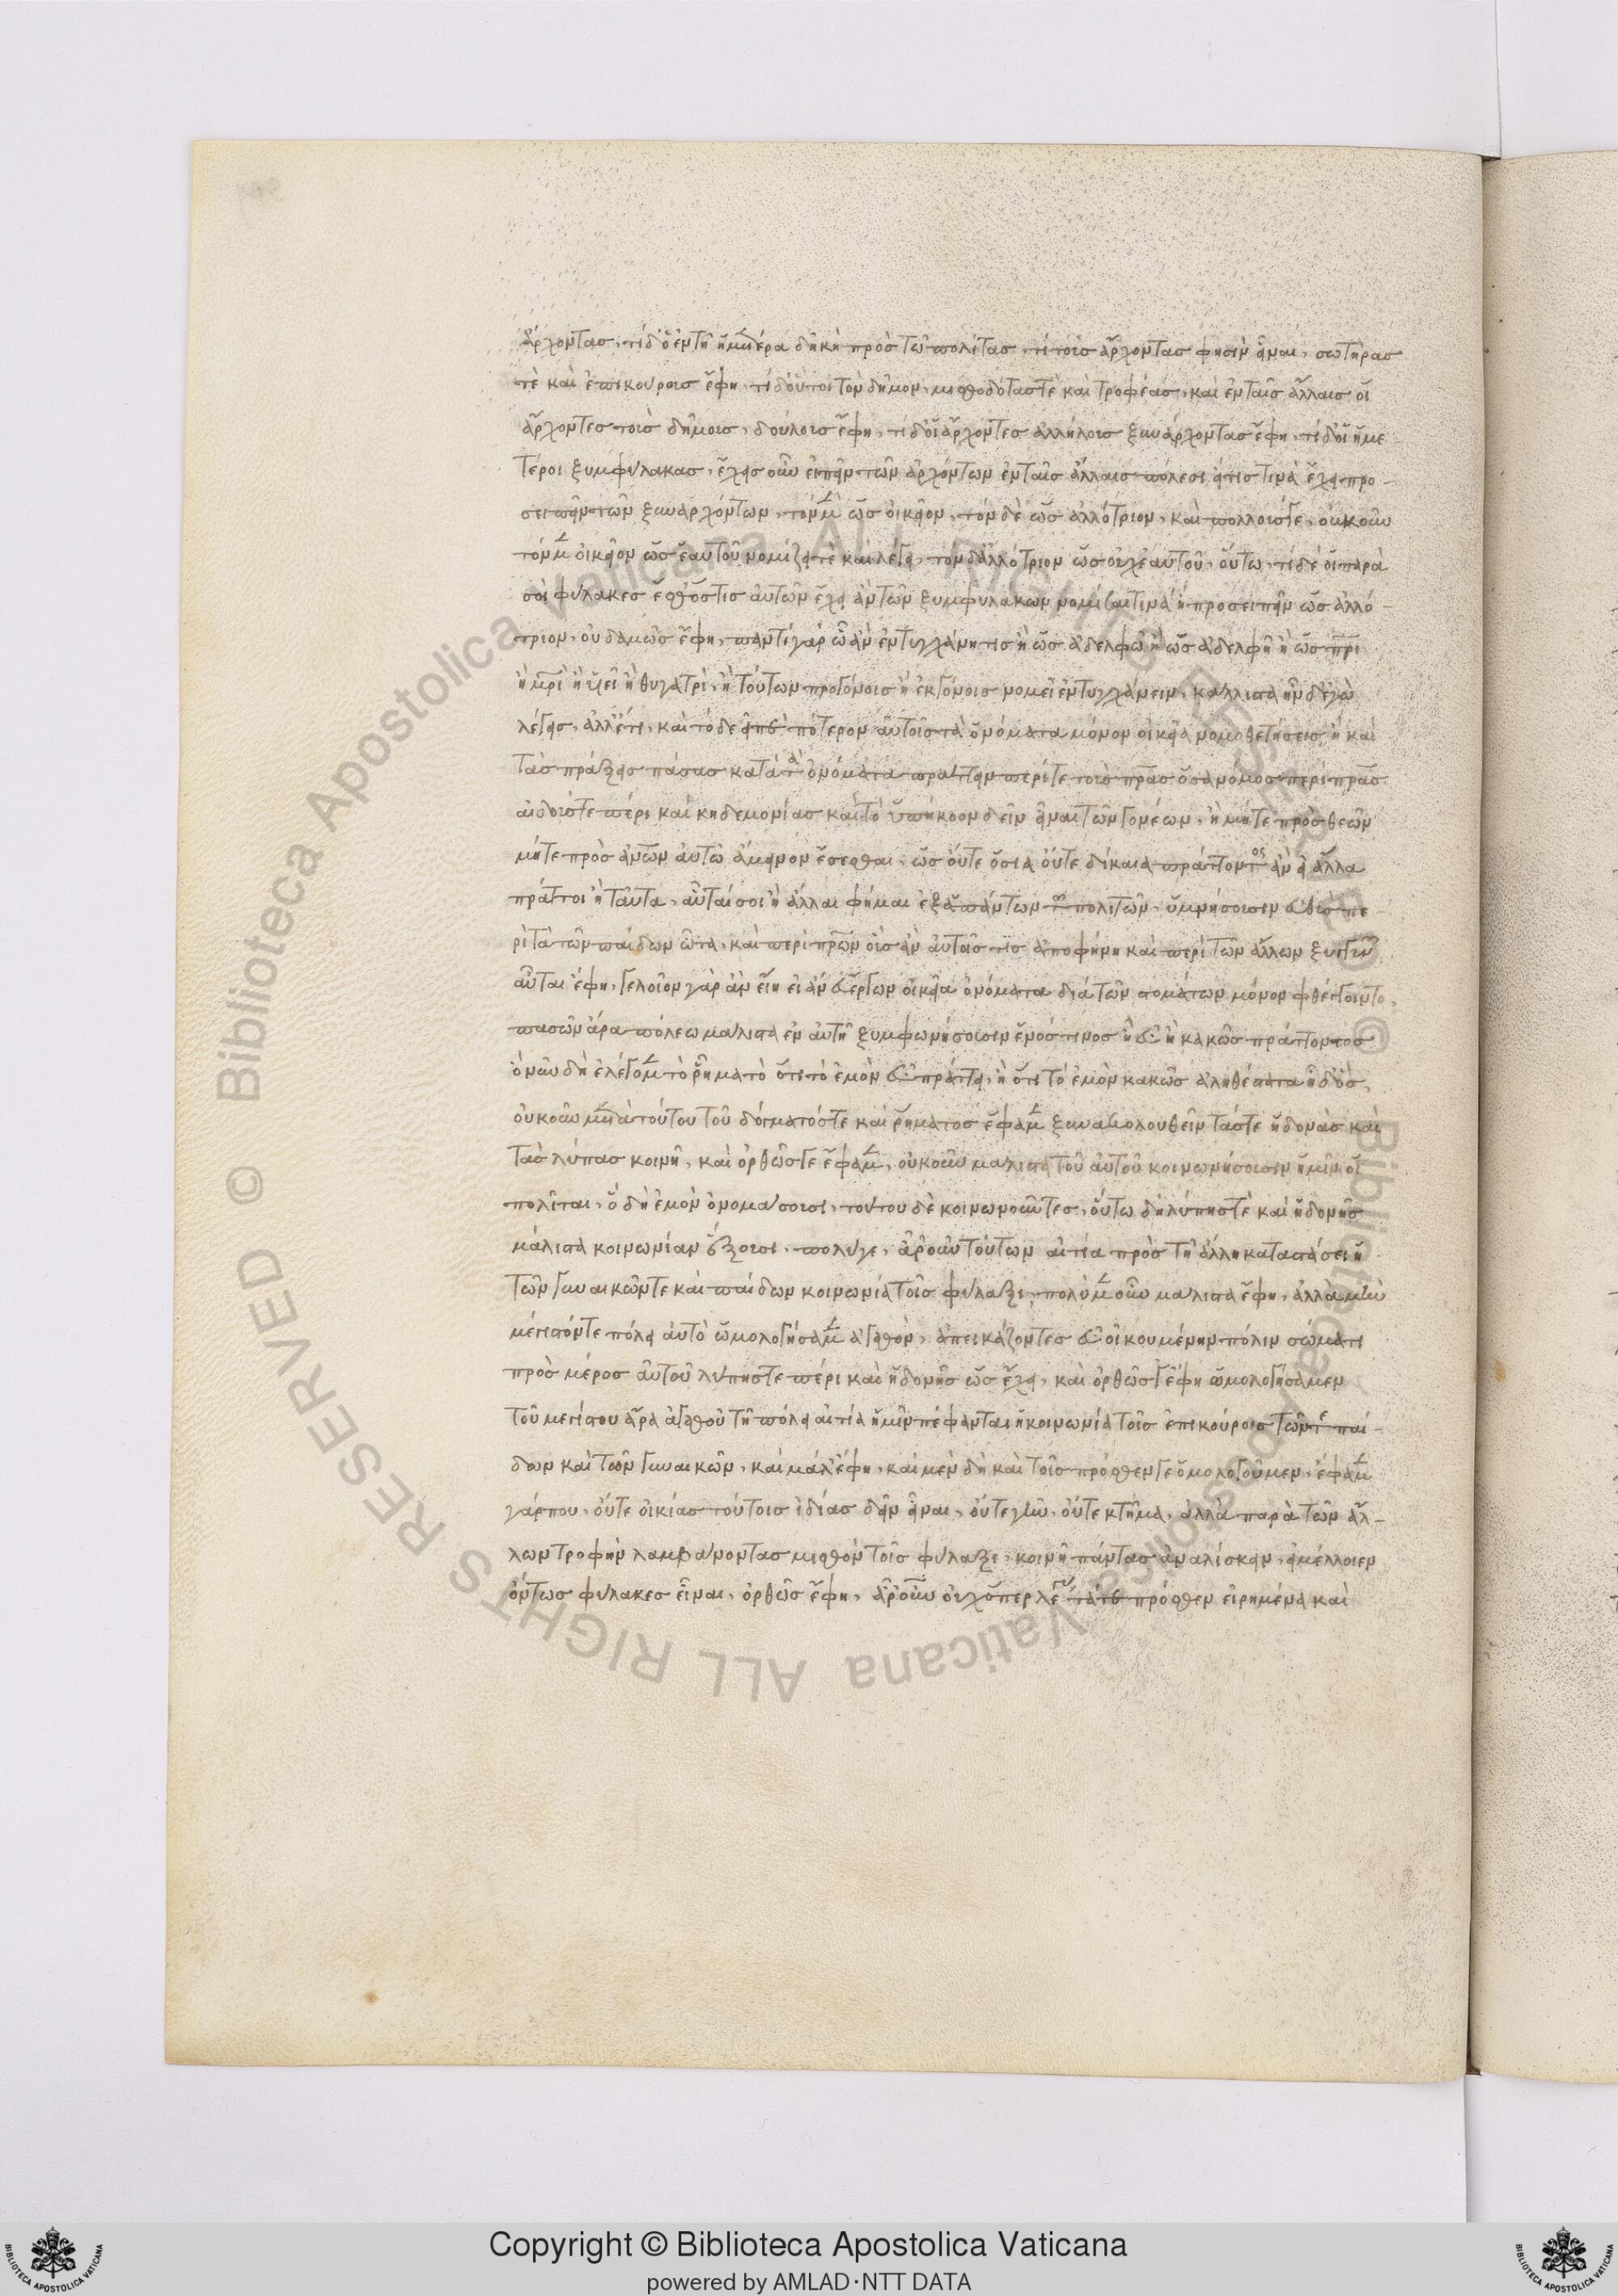 ἄρχοντας, τί δ' ὁ ἐν τῆ ἡμετέρα δῆμος πρὸς τῶ πολίτας, τί τοὺς ἄρχοντας φησὶν εἶναι, σωτῆρας
τὲ καὶ ἐπικούρους ἔφη, τί δ' οὗτοι τὸν δῆμον, μισθοδότας τὲ καὶ τροφέας, καὶ ἐν ταῖς ἄλλαις οἱ
ἄρχοντες τοὺς δήμους, δούλους ἔφη, τί δ' οἱ ἄρχοντες ἀλλήλους ξυνάρχοντας ἔφη, τί δ' οἱ ἡμέ-
τεροι ξυμφύλακας, ἔχεις οὖν εἰπεῖν τῶν ἀρχόντων ἐν ταῖς ἄλλαις πόλεσι εἴ τις τινὰ ἔχει προ-
σειπεῖν τῶν ξυναρχόντων, τὸν μὲν ὡς οἰκεῖον, τὸν δὲ ὡς ἀλλότριον, καὶ πολλούς γε, οὐκοῦν
τὸν μὲν οἰκεῖον ὡς ἑαυτοῦ νομίζει τὲ καὶ λέγει, τὸν δ' ἀλλότριον ὡς οὐχ ἑαυτοῦ, οὕτω, τί δὲ οἱ παρὰ
σοὶ φύλακες ἔσθ' ὅστις αὐτῶν ἔχει ἂν τῶν ξυμφυλάκων νομίσαι τινὰ ἢ προσειπεῖν ὡς ἀλλό-
τριον, οὐδαμῶς ἔφη, παντὶ γὰρ ὧ ἂν ἐντυγχάνη τις ἢ ὡς ἀδελφῶ ἢ ὡς ἀδελφῆ ἢ ὡς πρὶ
ἢ μρὶ ἢ υἱεῖ ἢ θυγατρὶ, ἢ τούτων προγόνοις ἢ ἐκγόνοις νομιεῖ ἐντυγχάνειν, κάλλιστα ἦν δ' ἐγὼ
λέγεις, ἀλλ' ἔτι, καὶ τόδε εἰπὲ πότερον αὐτοῖς τὰ ὀνόματα μόνον οἰκεῖα νομοθετήσεις ἢ καὶ
τὰς πράξεις πάσας κατὰ τὰ ὀνόματα πράττειν περί τε τοὺς πρας ὅσα νόμος περὶ πρας
αἰδοῦς τε πέρι καὶ κηδεμονίας καὶ τὸ ὑπήκοον δεῖν εἶναι τῶν γονέων, ἢ μήτε πρὸς θεῶν
μήτε πρὸς ἀνων αὐτῶ ἄμεινον ἔσεσθαι, ὡς οὔτε ὅσια οὔτε δίκαια πράττοντος ἂν εἰ ἄλλα
πράττοι ἢ ταῦτα, αὗταί σοι ἢ ἄλλαι φῆμαι ἐξ ἁπάντων τῶν πολιτῶν, ὑμνήσουσιν εὐθὺς πε
ρὶ τὰ τῶν παίδων ὦτα, καὶ περὶ πρων οὓς ἂν αὐτοῖς τις ἀποφήνη καὶ περὶ τῶν ἄλλων ξυγγενῶν
αὗται ἔφη, γελοῖον γὰρ ἂν εἴη εἰ ἄνευ ἔργων οἰκεῖα ὀνόματα διὰ τῶν στομάτων μόνον φθέγγοιντο,
πασῶν ἄρα πόλεω μάλιστα ἐν αὐτῆ ξυμφωνήσουσιν ἑνός τινος ἢ εὖ ἢ κακῶς πράττοντος
ὃ νῦν δὴ ἐλέγομεν τὸ ῥῆμα τὸ ὅτι τὸ ἐμὸν εὖ πράττει, ἢ ὅτι τὸ ἐμὸν κακῶς ἀληθέστατα ἦ δ' ὅς,
οὐκοῦν μετὰ τούτου τοῦ δόγματός τε καὶ ῥήματος ἔφαμεν ξυνακολουθεῖν τάς τε ἡδονὰς καὶ
τὰς λύπας κοινῆ, καὶ ὀρθῶς γε ἔφαμεν, οὐκοῦν μάλιστα τοῦ αὐτοῦ κοινωνήσουσιν ἡμῖν οἱ
πολῖται, ὃ δὴ ἐμὸν ὀνομάσουσι, τούτου δὲ κοινωνοῦντες, οὕτω δὴ λύπης τὲ καὶ ἡδονῆς
μάλιστα κοινωνίαν ἕξουσι, πολύ γε, ἆρ' οὖν τούτων αἰτία πρὸς τῆ ἄλλη καταστάσει ἡ
τῶν γυναικῶν τε καὶ παίδων κοινωνία τοῖς φύλαξι, πολὺ μὲν οὖν μάλιστα ἔφη, ἀλλὰ μὴν
μέγιστόν τε πόλει αὐτὸ ὡμολογήσαμεν ἀγαθὸν, ἀπεικάζοντες εὖ οἰκουμένην πόλιν σώματι
πρὸς μέρος αὐτοῦ λύπης τε πέρι καὶ ἡδονῆς ὡς ἔχει, καὶ ὀρθῶς γ' ἔφη ὡμολογήσαμεν
τοῦ μεγίστου ἄρα ἀγαθοῦ τῆ πόλει αἰτία ἡμῖν πέφανται ἡ κοινωνία τοῖς ἐπικούροις τῶν τε παί-
δων καὶ τῶν γυναικῶν, καὶ μάλ' ἔφη, καὶ μὲν δὴ καὶ τοῖς πρόσθεν γε ὁμολογοῦμεν, ἔφαμεν
γάρ που, οὔτε οἰκίας τούτοις ἰδίας δεῖν εἶναι, οὔτε γῆν, οὔτε κτῆμα, ἀλλὰ παρὰ τῶν ἄλ-
λων τροφὴν λαμβάνοντας μισθὸν τοῖς φύλαξι, κοινῆ πάντας ἀναλίσκειν, εἰ μέλλοιεν
ὄντως φύλακες εἶναι, ὀρθῶς ἔφη, ἆρ' οὖν οὐχ ὅπερ λέγω τά τε πρόσθεν εἰρημένα καὶ
Copyright © Biblioteca Apostolica Vaticana
powered by AMLAD·NTT DATA